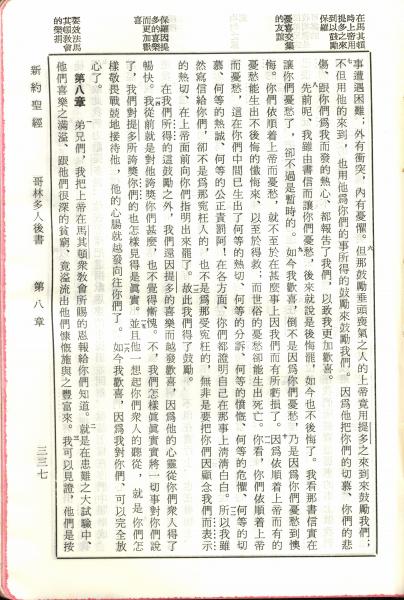 在馬其頓
時上帝用
提多之來
到以鼓勵
保羅
憂喜交集
的友誼
保羅因提
多的喜樂
而更加歡
喜
要效法馬
其頓教會
的樂捐
事遭遇困難；外有衝突，內有憂懼。但那鼓勵垂頭喪氣之人的上帝竟用提多之來到來鼓勵我們；
不但用他的來到，也用他爲你們的事所得的鼓勵來鼓勵我們。因爲他把你們的切慕、你們的悲
傷、跟你們爲我而發的熱心、都報告了我們，以致我更加歡喜。
先前呢、我雖由書信而讓你們憂愁，後來就說是後悔罷，如今也不後悔了。我看那書信實在
讓你們憂愁了，卻不過是暫時的。如今我歡喜，倒不是因爲你們憂愁，乃是因爲你們憂愁到懊
悔。你們依順着上帝而憂愁，就不至於在甚麼事上因我們而有所虧損了。因爲依順着上帝而有的
憂愁能生出不後悔的懺悔來、以至於得救，而世俗的憂愁卻能生出死亡。你看，你們依順着上帝
而憂愁，這在你們中間已生出了何等的熱切、何等的分訴、何等的憤慨、何等的危懼、何等的切
慕、何等的熱誠、何等的公正責罰阿！在各方面、你們都證明自己在那事上清清白白。所以我雖
然寫信給你們，卻不是爲那寃枉人的，也不是爲那受寃枉的，無非是要把你們因顧念我們而表示
的熱切、在上帝面前向你們指明出來罷了。故此我們得了鼓勵。
在我們所得的這鼓勵之外，我們還因提多的喜樂而越發歡喜，因爲他的心靈從你們衆人得了
暢快。我從前就是對他誇獎你們甚麼，也不覺得慚愧。不，我們怎樣眞眞實實將一切事對你們說
了，我們對提多所誇獎你們的也怎樣見得是眞實。並且他一想起你們衆人的聽從，就是你們怎
樣敬畏戰兢地接待他，他的心腸就越發向往你們了。如今我歡喜，因爲我對你們、可以完全放
心了。
第八章 弟兄們，我把上帝在馬其頓衆教會所賜的恩報給你們知道。就是在患難之大試驗中、
他們喜樂之滿溢、跟他們很深的貧窮、竟溢流出他們慷慨施與之豐富來。我可以見證，他們是按
新約聖經 哥林多人後書 第八章 三三七